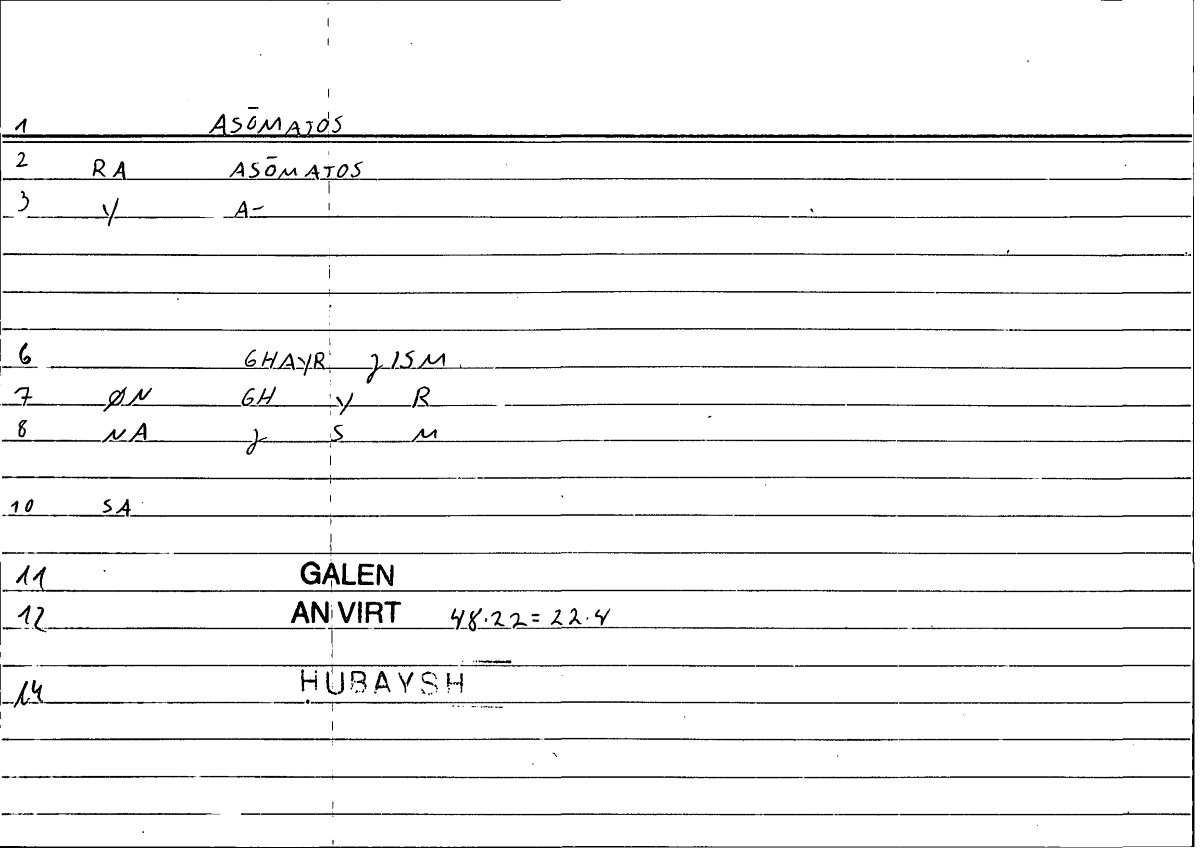 1 ASŌMATOS
2 RA ASŌMATOS
3 Y A-
6 GHAYR ǧISM
7 ØN GH Y R
8 NA ǧ S M
10 SA
11 GALEN
12 AN VIRT 48.22 = 22.4
14 ḤUBAYSH